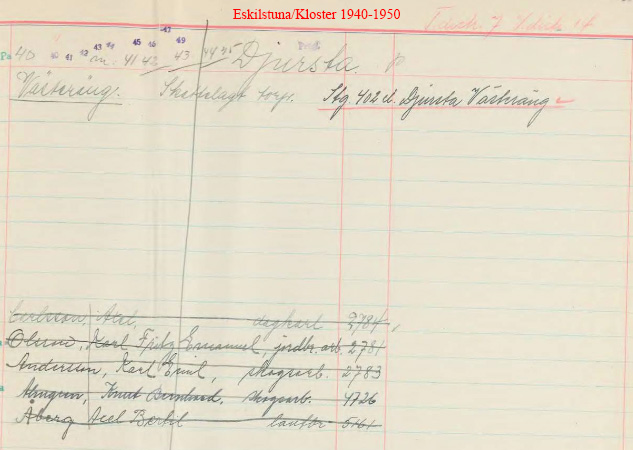 Eskilstuna/Kloster 1940-1950
Täck. 7
40 41 42 43 44 45 46 47 49
40 m. 41 42 43 44 45 Djursta.
Västeräng. Skattelagt torp. Stg. 402 d. Djursta Västeräng
Carlsson, Axel, 2784
Olsson, Karl Fritz Emanuel, jordbr. arb. 2781
Andersson, Karl Emil, skogsarb. 2783
Almgren, Knut Bernhard, skogsarb. 4726
Åberg Axel Bertil lantbr 5161